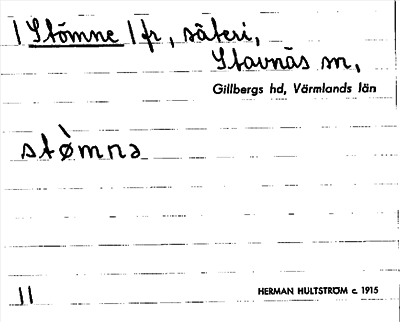 | Stömne | fr, säteri,
Stavnäs sn,
Gillbergs hd, Värmlands län
stø̀mnə
11
HERMAN HULTSTRÖM c. 1915